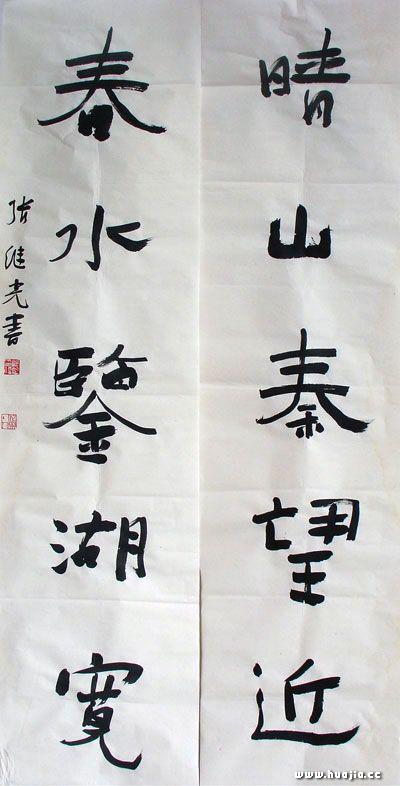 晴山秦望近
春水鑒湖寬
张继光書
www.huajia.cc